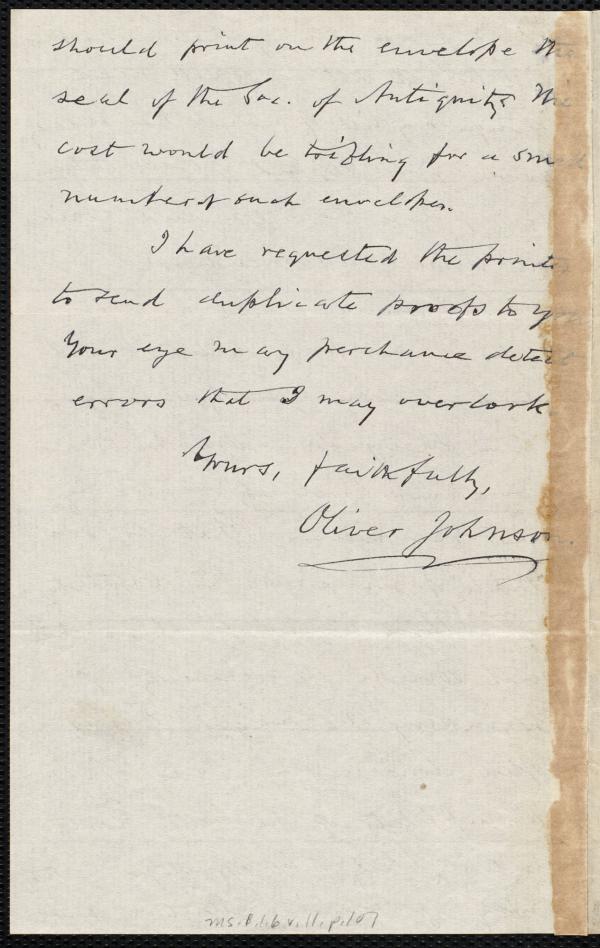 should print on the envelope the
seal of the Soc. of Antiquity. The
cost would be trifling for a small
number of such envelopes.
I have requested the printer
to send duplicate proofs to you
Your eye may perchance detect
errors that I may overlook.
Yours, faithfully,
Oliver Johnson.
Ms.A.1.6 v.11, p.107